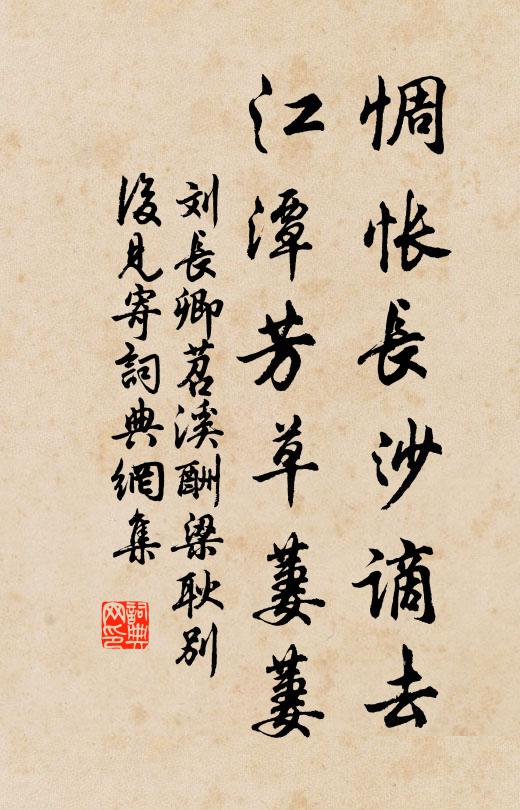 惆怅長沙谪去
江潭芳草萋萋
刘長卿苕溪酬梁耿别
後見寄詞典網集
詞典
网印